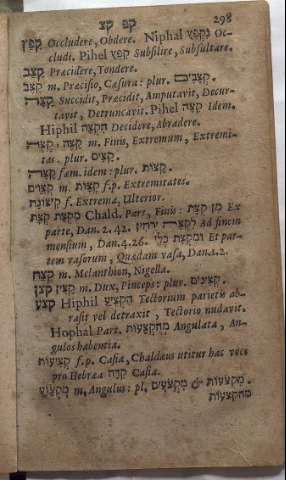 קפ קצ 298
קפץ Occludere, Obdere. Niphal נקפץ Oc-
cludi. Pihel קפץ Subsilire, Subsultare.
קצב Præcidere, Tondere.
קצב m. Præcisio, Cæsura: plur. קצבים.
קצה Succidit, Præcidit, Amputavit, Decur-
tavit, Detruncavit. Pihel קצה Idem.
Hiphil הקצה Decidere, Abradere.
קצה, קצה m. Finis, Extremum, Extremi-
tas. plur. קצים.
קצה fœm. idem: plur. קצות.
קצוים m. קצות f.p. Extremitates.
קיצונה f. Extrema, Ulterior.
קצת מקצת Chald. Part, Finis: מן קצת Ex
parte, Dan. 2. 42. לקצת ירחין Ad finem
mensium, Dan. 4. 26. ומקצת כלי Et par-
tem vasorum, Quædam vasa, Dan. 1. 2.
קצח m. Melanthion, Nigella.
קצין קצן m. Dux, Pinceps: plur. קצינים.
קצע Hiphil הקציע Tectorium parietis ab-
rasit vel detraxit, Tectorio nudavit.
Hophal Part. מהקצעות Angulata, An-
gulos habentia.
קציעות f.p. Casia, Chaldæus utitur hac voce
pro Hebræa קדה Casia.
מקצוע m. Angulus: pl. מקצעים & מקצעות.
מהקצעות